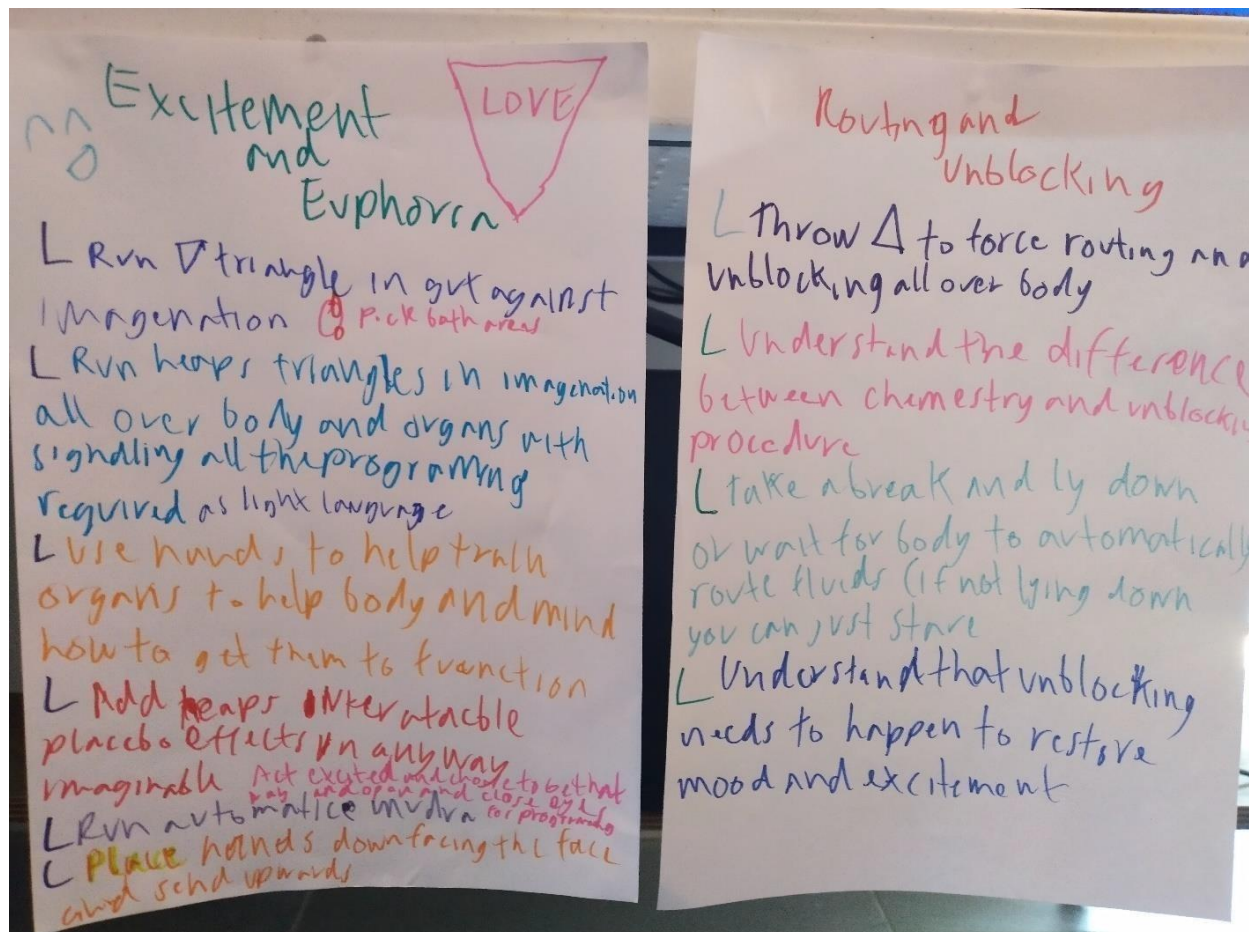 Excitement
and
Euphoria
LOVE
L Run ▽ triangle in gut against
imagenation Pick both areas
L Run heaps triangles in imagenation
all over body and organs with
signalling all the programing
required as light language
L Use hands to help train
organs to help body and mind
how to get them to function
L Add heaps
placebo effects in anyway
imaginable Act excited and chose to be that
way and open and close eye
L Run automatice mudra for programing
L Place hands down facing the face
and send upwards
Routing and
Unblocking
L Throw △ to force routing and
unblocking all over body
L Understand the difference
between chemestry and
procedure
L take a break and ly down
or wait for body to automatically
route fluids (if not lying down
you can just stare
L Understand that unblocking
needs to happen to restore
mood and excitement